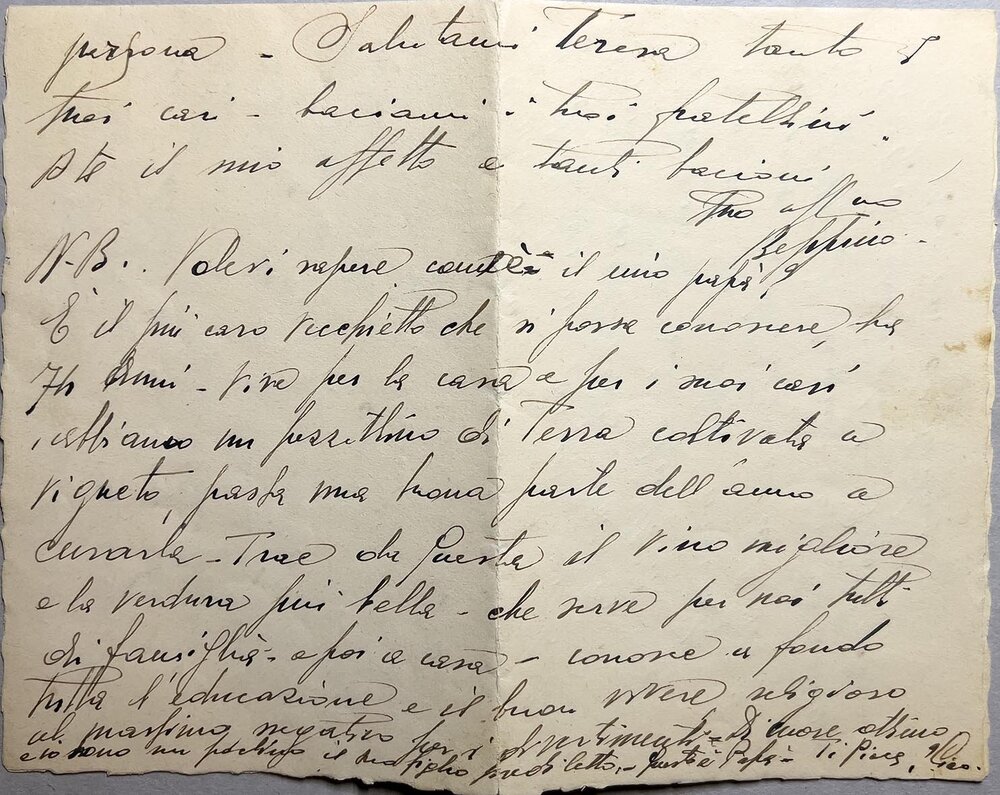 persona - Salutami Teresa tanto I
tuoi cari - baciami i tuoi fratellini
A te il mio affetto e tanti bacioni
Tuo aff mo
Beppino -
N.B. . Volevi sapere com'è il mio papà?
È il più caro vecchietto che si possa conoscere, ha
74 anni - vive per la casa e per i suoi cari
, abbiamo un pezzettino di Terra coltivata a
vigneto, passa una buona parte dell'anno a
curarla - Trae da questa il vino migliore
e la verdura più bella - che serve per noi tutti
di famiglia - e poi a casa - conosce a fondo
tutta l'educazione e il buon vivere religioso
al massimo negativo per i Di cuore ottimo
io sono un pochino il suo figlio prediletto, - questo è Papà - Ti Piace,